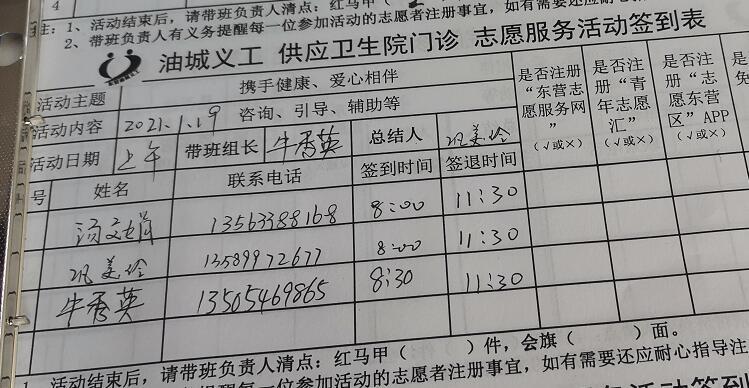 4
注：1、活动结束后，请带班负责人清点：红马甲（
2、带班负责人有义务提醒每一位参加活动的志愿者注册事宜，如有需要还应耐心
油城义工 供应卫生院门诊 志愿服务活动签到表
活动主题 携手健康、爱心相伴
活动内容 咨询、引导、辅助等
2021.1.19
活动日期 上午 带班组长 牛秀英 总结人 巩美玲
号 姓名 联系电话 签到时间 签退时间 是否注册“东营志愿服务网”（√或×） 是否注册“青年志愿汇”（√或×） 是否注册“志愿东营区”APP（√或×）
13563388168 8:00 11:30
巩美玲 13589972677 8:00 11:30
牛秀英 13505469865 8:30 11:30
活动结束后，请带班负责人清点：红马甲（ ）件，会旗（ ）面。
提醒每一位参加活动的志愿者注册事宜，如有需要还应耐心指导注